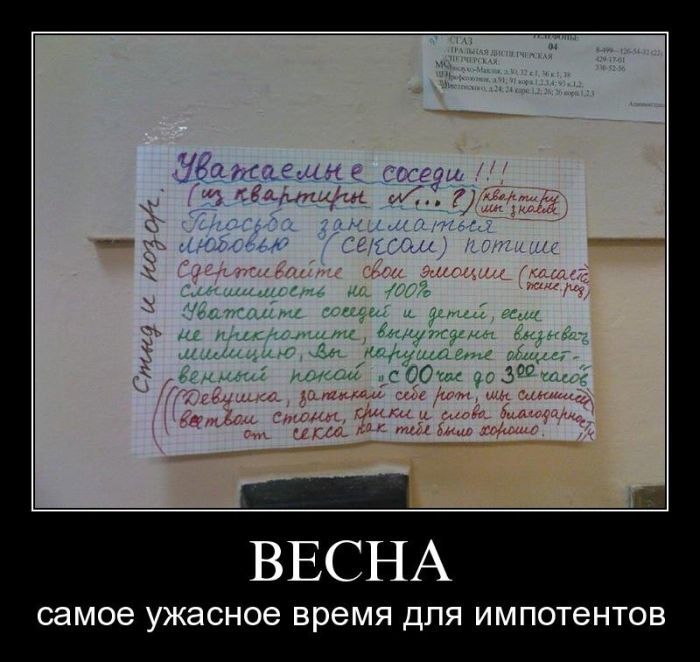 СГАЗ
04
ТРАЛЬНАЯ ДИСПЕТЧЕРСКАЯ
429-17-01
330-52-56
Уважаемые соседи!!!
(из квартиры №...?) (квартиру мы знаем)
Просьба заниматься
любовью (СЕКСОМ) потише
Сдерживайте свои эмоции (касается женс. род)
слышимость на 100%
Уважайте соседей и детей, если
не прекратите, вынуждены вызывать
милицию, Вы нарушаете общест-
венный покой „с 00 час до 3 00 часов"
((Девушка, затыкай себе рот, мы слышим
все твои стоны, крики и слова благодарности
от секса как тебе было хорошо.))
Стыд и позор.
ВЕСНА
самое ужасное время для импотентов